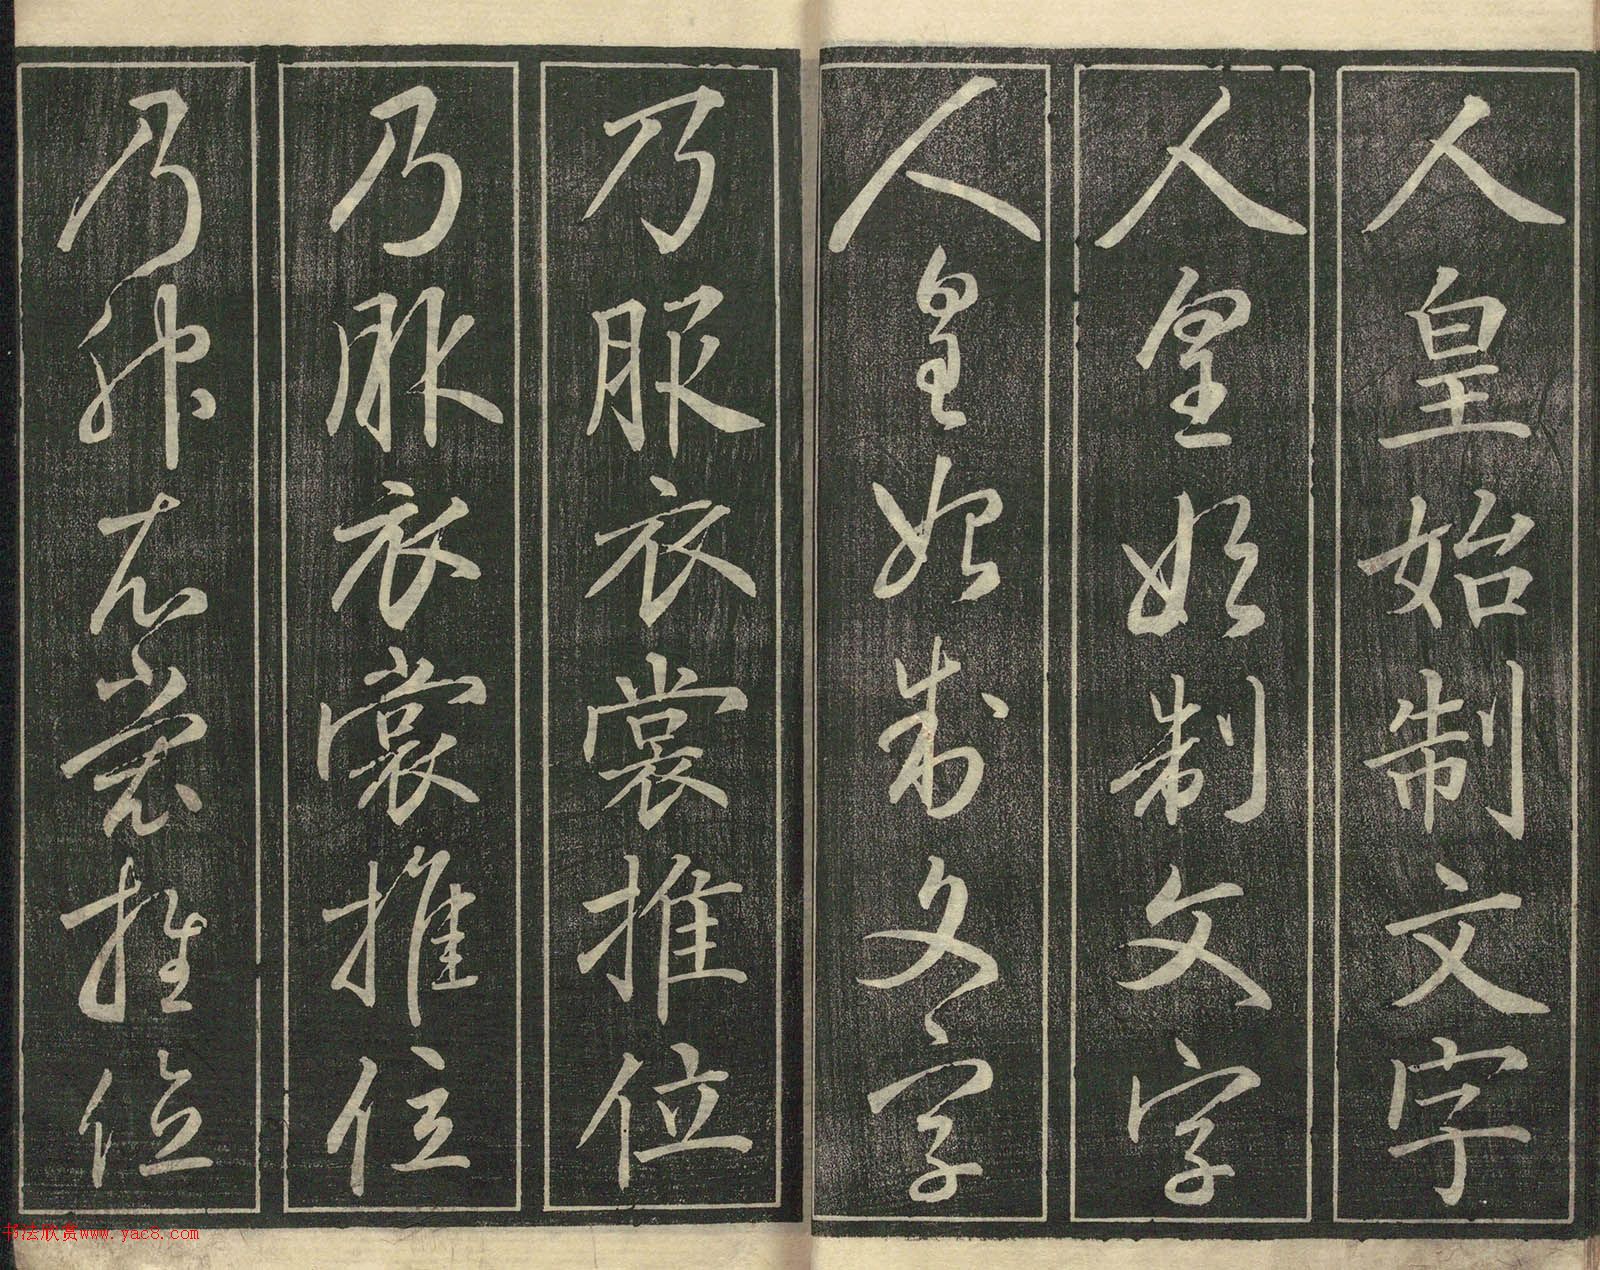 人皇始制文字
人皇始制文字
人皇始制文字
乃服衣裳推位
乃服衣裳推位
乃服衣裳推位
书法欣赏www.yac8.com